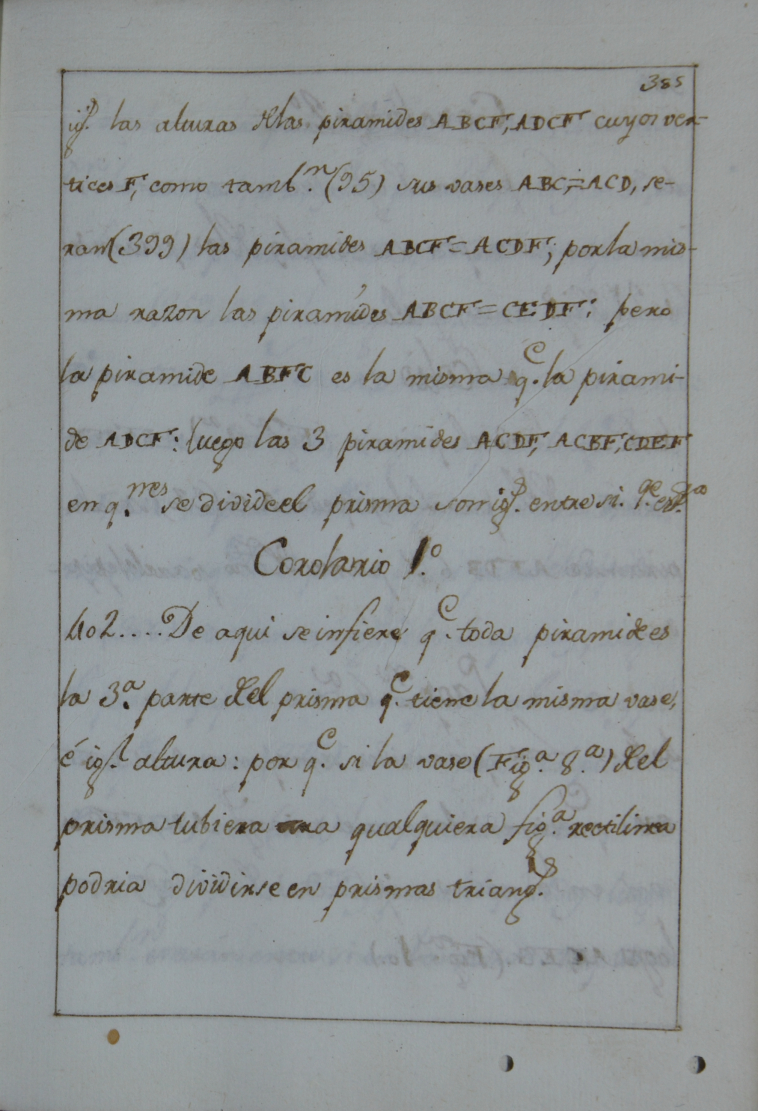 385
ig.s las alturas de las piramides ABCF, ADCF cuyos ver-
tices F, como tamb.n (95) sus vases ABC, = ACD, se-
ran (399) las piramides ABCF = ACDF; por la mis-
ma razon las piramides ABCF = CEDF: pero
la piramide ABFC es la misma q.e la pirami-
de ADCF: luego las 3 piramides ACDF, ACBF, CDEF
en q. se divide el prisma son ig.s entre si.
Corolario 1.o
402.... De aqui se infiere q.e toda piramide es
la 3.a parte del prisma q.e tiene la misma vase,
é ig.l altura: por q.e si la vase (Fig.a 8.a) del
prisma tubiera qualquiera fig.a rectilinea
podria dividirse en prismas triang.s